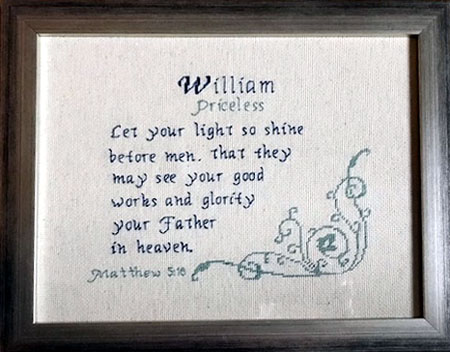 William
Priceless
Let your light so shine
before men. that they
may see your good
works and glorify
your Father
in heaven.
Matthew 5:16